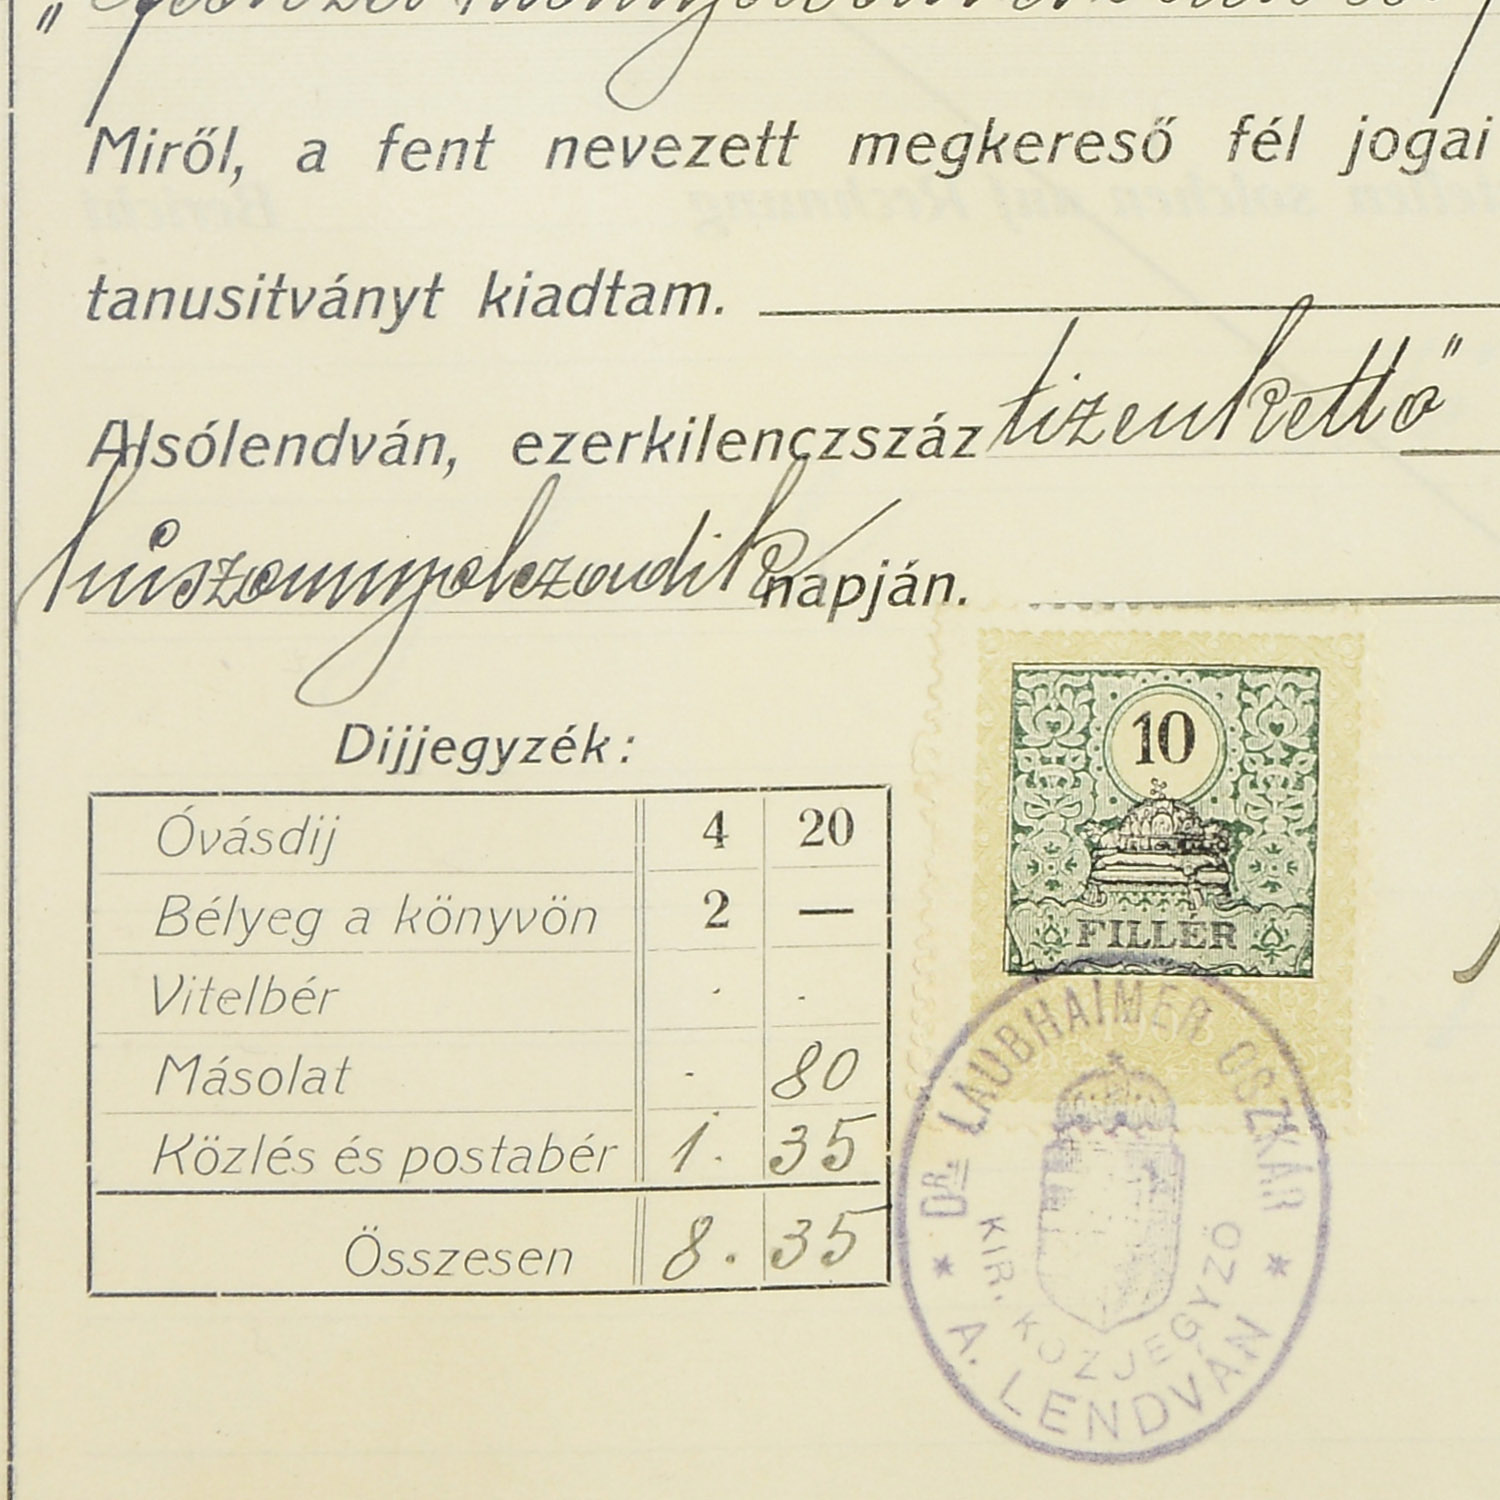 Miről, a fent nevezett megkereső fél jogai
tanusitványt kiadtam.
Alsólendván, ezerkilenczszáz tizenkettő"
húszonnyolczadik napján.
Dijjegyzék:
Óvásdij 4 20
Bélyeg a könyvön 2 —
Vitelbér . .
Másolat - 80
Közlés és postabér 1. 35
Összesen 8. 35
10
FILLÉR
* DR. LAUBHAIMER OSZKÁR *
KIR. KÖZJEGYZŐ
A. LENDVÁN